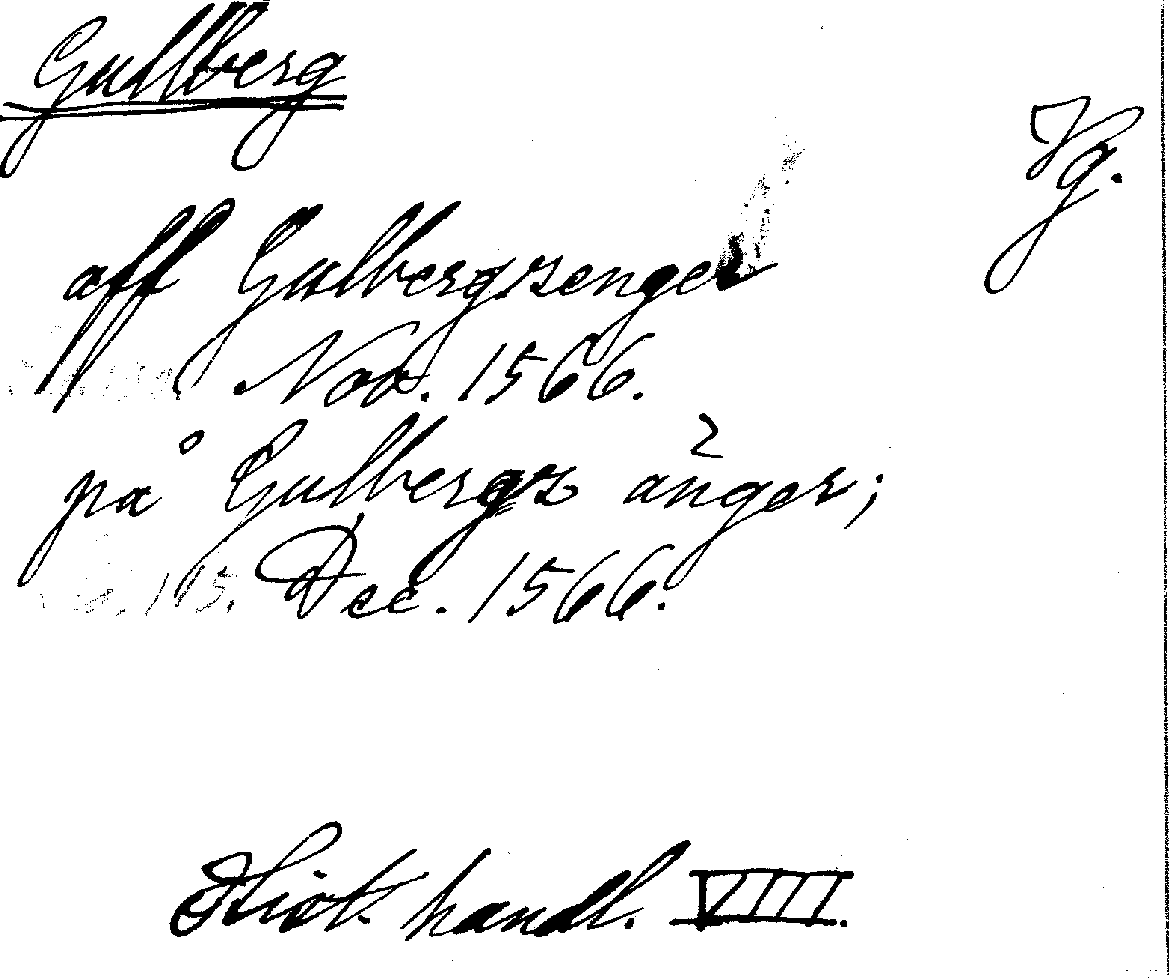 Gullberg
Vg.
aff Gulbergzenger
Nov. 1566.
på Gulbergz änger;
Dec. 1566.
Hist. handl. VIII.